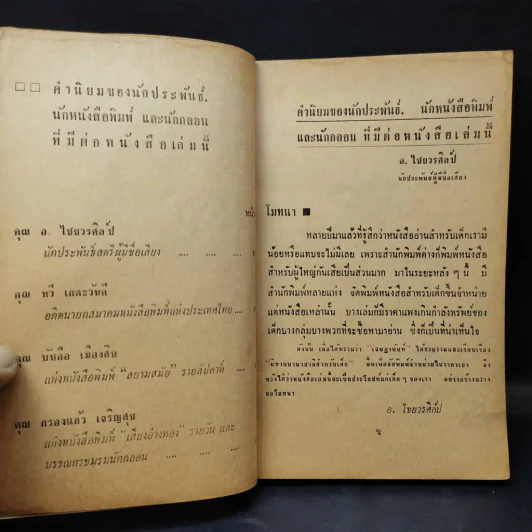 □□ คำนิยมของนักประพันธ์,
นักหนังสือพิมพ์ และนักกลอน
ที่มีต่อหนังสือเล่มนี้
หน้า
คุณ อ. ไชยวรศิลป์
นักประพันธ์สตรีผู้มีชื่อเสียง .... ....
คุณ ทวี เกตะวันดี
อดีตนายกสมาคมหนังสือพิมพ์แห่งประเทศไทย ....
คุณ บันลือ เมืองสิข
แห่งหนังสือพิมพ์ "สยามสมัย" รายสัปดาห์ ....
คุณ กรองแก้ว เจริญสุข
แห่งหนังสือพิมพ์ "เสียงอ่างทอง" รายวัน และ
บรรณกรชมรมนักกลอน .... .... ....
คำนิยมของนักประพันธ์, นักหนังสือพิมพ์
และนักกลอน ที่มีต่อหนังสือเล่มนี้
อ. ไชยวรศิลป์
นักประพันธ์ผู้มีชื่อเสียง
โมทนา ■
หลายปีมาแล้วที่รู้สึกว่าหนังสืออ่านสำหรับเด็กเรามี
น้อยหรือแทบจะไม่มีเลย เพราะสำนักพิมพ์ต่างก็พิมพ์หนังสือ
สำหรับผู้ใหญ่กันเสียเป็นส่วนมาก มาในระยะหลัง ๆ นี้ มี
สำนักพิมพ์หลายแห่ง จัดพิมพ์หนังสือสำหรับเด็กขึ้นจำหน่าย
แต่หนังสือเหล่านั้น บางเล่มก็มีราคาแพงเกินกำลังทรัพย์ของ
เด็กบางกลุ่มบางพวกที่จะซื้อหามาอ่าน ซึ่งก็เป็นที่น่าเห็นใจ
ดังนั้น เมื่อได้ทราบว่า ได้รวบรวมและเรียบเรียง
ขึ้นเพื่อจัดพิมพ์จำหน่ายในราคาเยา ข้า
หวังได้ว่าหนังสือเล่มนี้จะเป็นประโยชน์แก่เด็ก ๆ ของเรา อย่างกว้างขวาง
ขอโมทนา
อ. ไชยวรศิลป์